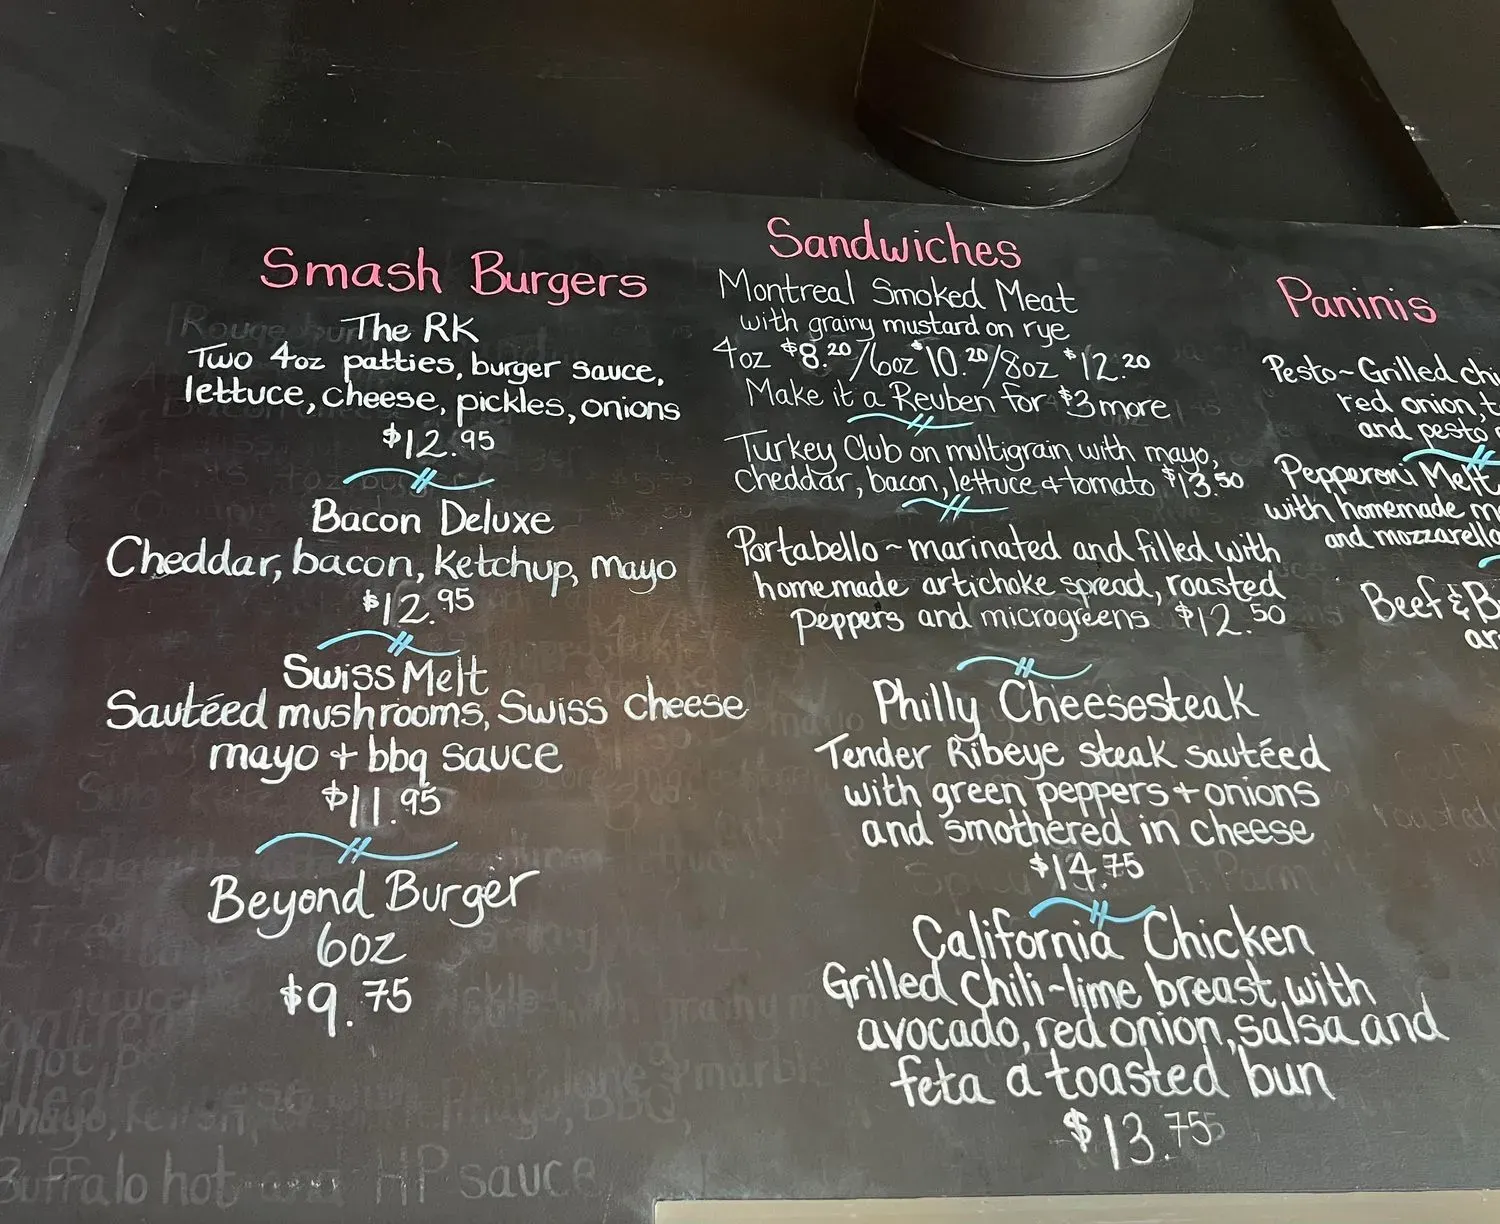 Smash Burgers
The RK
Two 4oz patties, burger sauce,
lettuce, cheese, pickles, onions
$12.95
Bacon Deluxe
Cheddar, bacon, ketchup, mayo
$12.95
Swiss Melt
Sautéed mushrooms, Swiss cheese
mayo + bbq sauce
$11.95
Beyond Burger
6oz
$9.75
Buffalo hot and HP sauce
Sandwiches
Montreal Smoked Meat
with grainy mustard on rye
4oz $8.20/6oz $10.20/8oz $12.20
Make it a Reuben for $3 more
Turkey Club on multigrain with mayo,
cheddar, bacon, lettuce + tomato $13.50
Portabello ~ marinated and filled with
homemade artichoke spread, roasted
peppers and microgreens $12.50
Philly Cheesesteak
Tender Ribeye steak sautéed
with green peppers + onions
and smothered in cheese
$14.75
California Chicken
Grilled chili-lime breast, with
avocado, red onion, salsa and
feta a toasted bun
$13.75
Paninis
Pesto ~ Grilled
red onion,
and pesto
Pepperoni Melt
with homemade
and mozzarella
Beef &